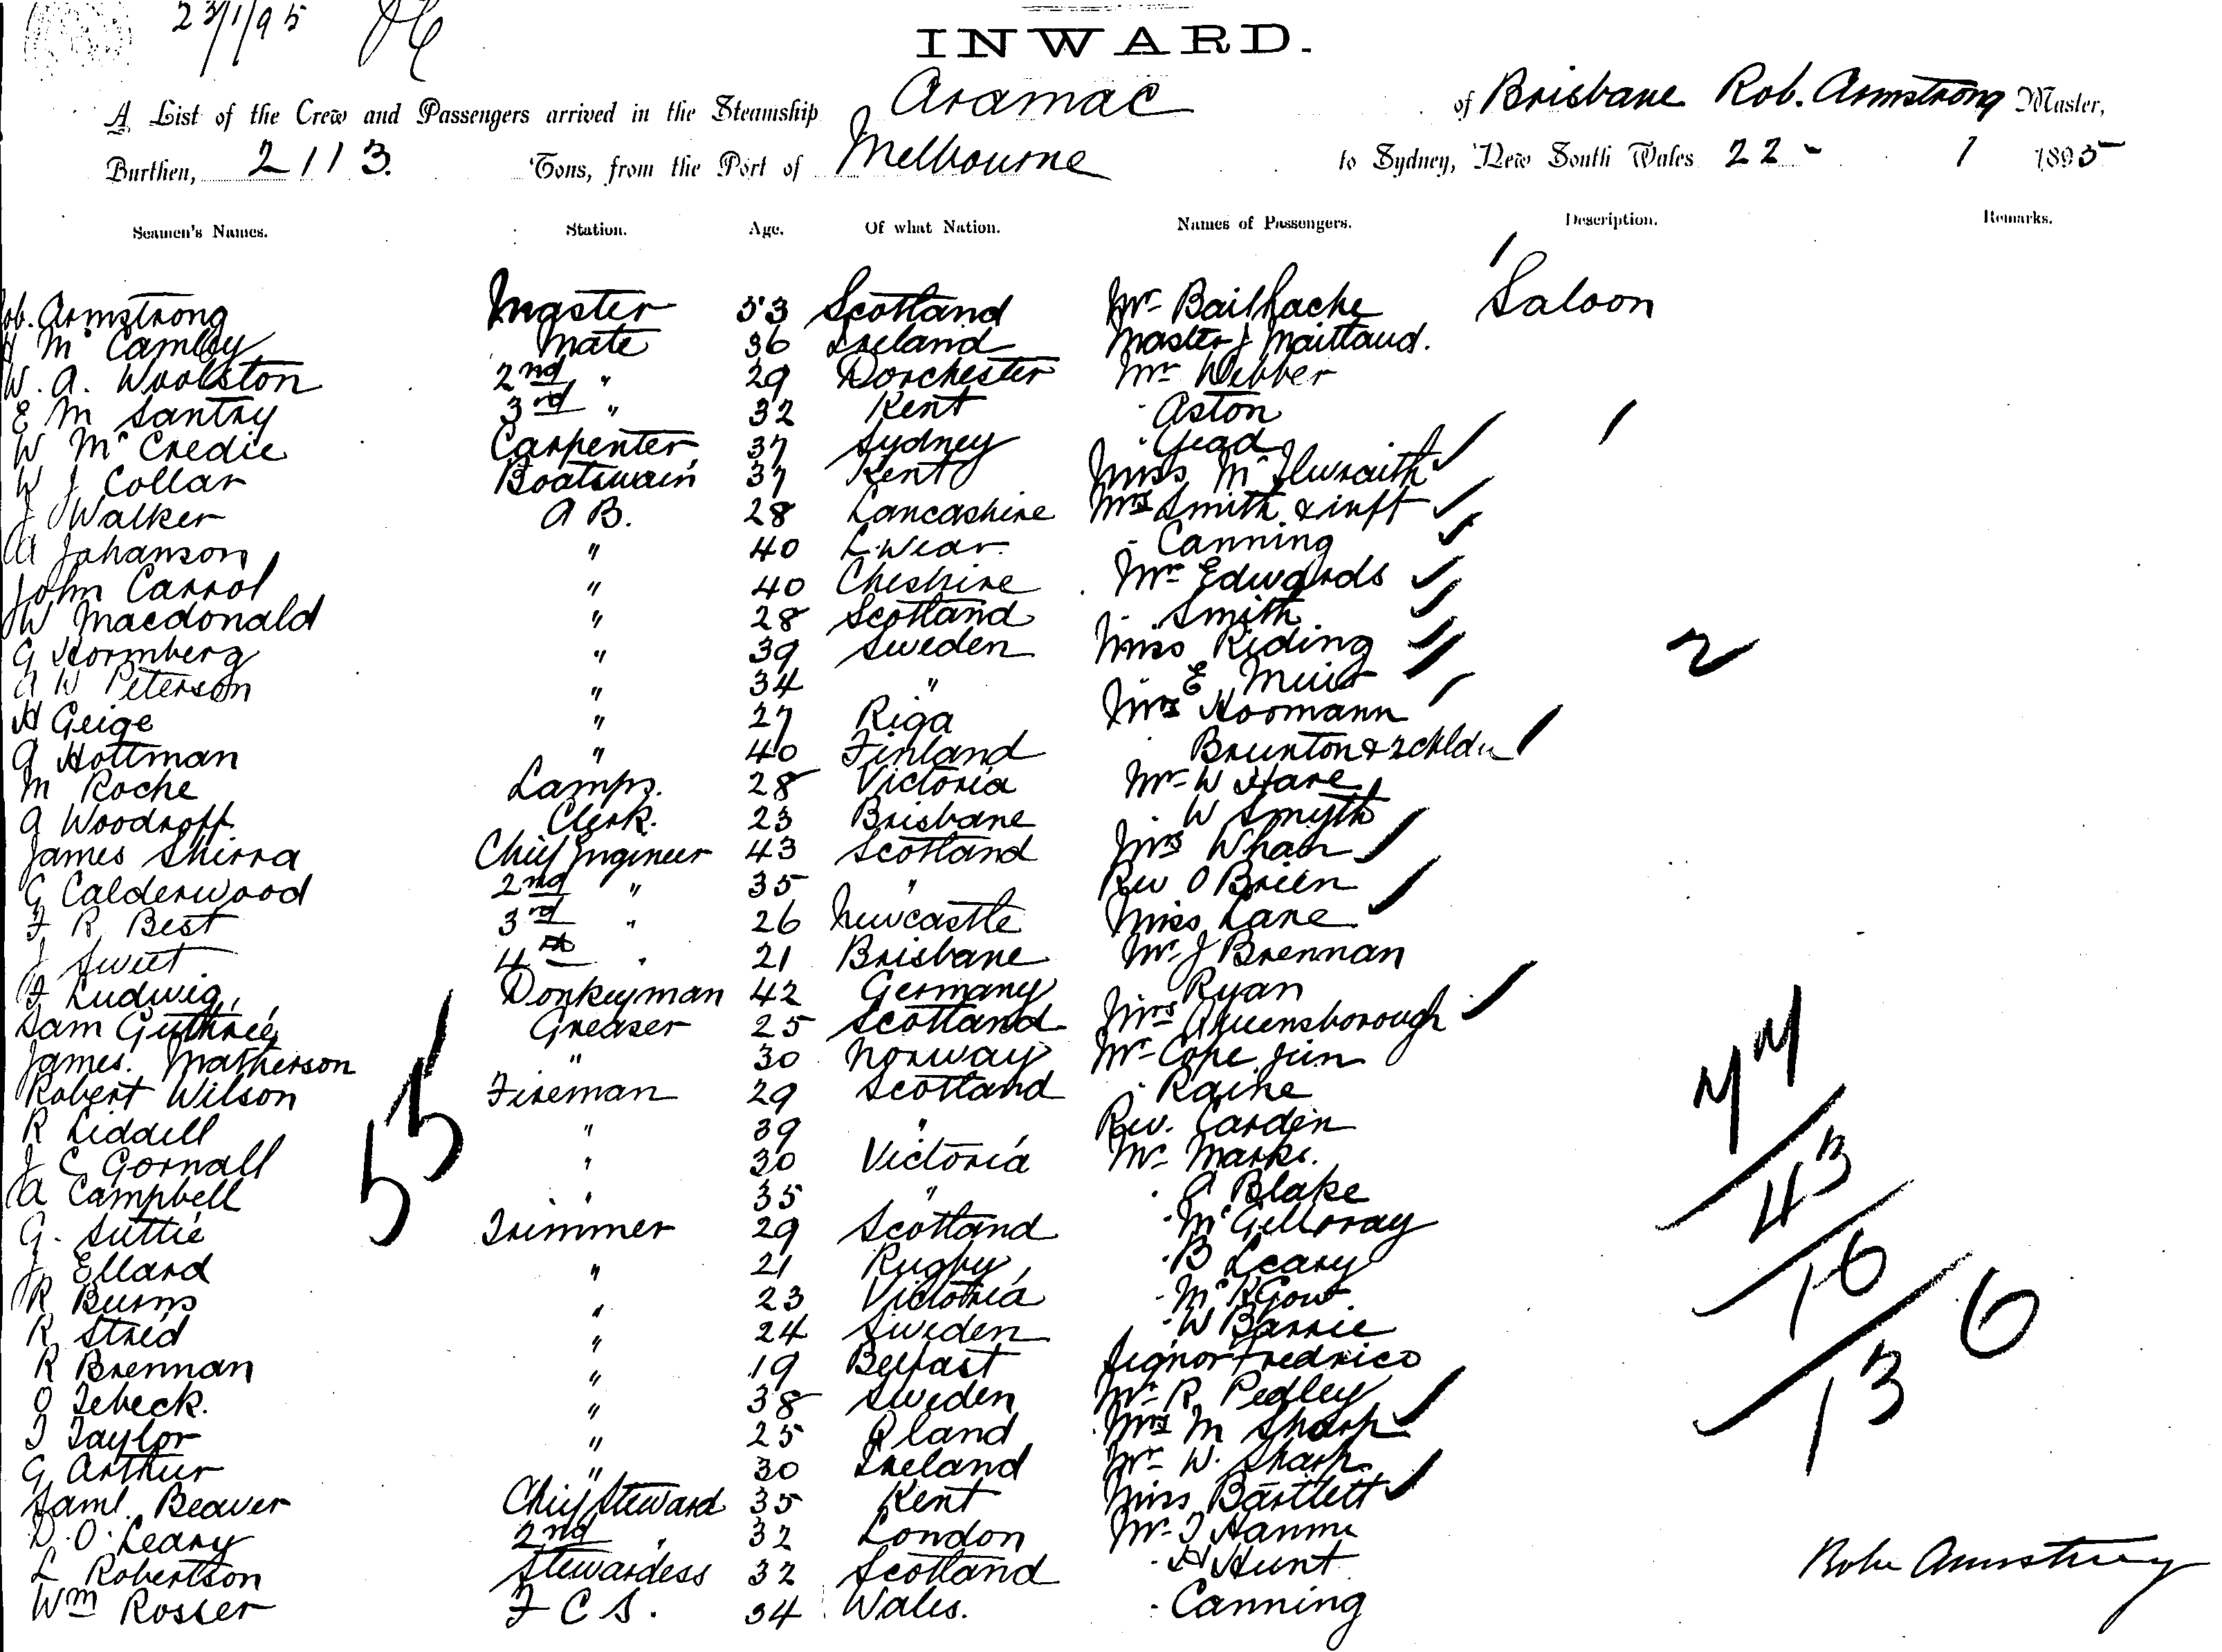 23/1/95
INWARD.
A List of the Crew and Passengers arrived in the Steamship Aramac of Brisbane Rob. Armstrong Master,
Burthen, 2113. Tons, from the Port of Melbourne to Sydney, New South Wales 22 - 1 1895
Seamen's Names. Station. Age. Of what Nation. Names of Passengers. Description. Remarks.
ob. Armstrong Master 53 Scotland Mr Bailhache Saloon
Mc Camley Mate 36 Ireland Master J Maitland.
W. A. Woolston 2nd " 29 Dorchester Mr Webber
E M Santry 3rd " 32 Kent " Aston
W Mc Credie Carpenter 37 Sydney "
W J Collar Boatswain 37 Kent Miss McIlwraith
J Walker A B. 28 Lancashire Mrs Smith & inft
A Johanson " 40 " Canning
John Carrol " 40 Cheshire Mr Edwards
W Macdonald " 28 Scotland " Smith
G Hormberg " 39 Sweden Miss Riding 2
A W Peterson " 34 " E Muir
H Geige " 27 Riga Mrs Hoomann
A Hottman " 40 Finland Brunton & 2 chldn
M Roche Lamps. 28 Victoria Mr W Hare
A Woodroff Clerk. 23 Brisbane " W Smyth
James Shirra Chief Engineer 43 Scotland Mrs
G Calderwood 2nd " 35 " Rev O Brien
F R Best 3rd " 26 Newcastle Miss Lane
J Sweet 4th " 21 Brisbane Mr J Brennan
F Ludwig Donkeyman 42 Germany Ryan
Sam Guthrie Greaser 25 Scotland Mrs Queensborough
James. Matherson " 30 Norway Mr Cope Jun
Robert Wilson Fireman 29 Scotland " Raine
R Liddell " 39 " Rev. Carden
J C Gornall " 30 Victoria Mr Marks.
A Campbell " 35 " " A Blake
G. Suttie Trimmer 29 Scotland " McGilloray
J Ellard " 21 Rugby " B Leary
R Burns " 23 Victoria "
R Strid " 24 Sweden " W Barrie
R Brennan " 19 Belfast Signor Fredrico
O Tebeck. " 38 Sweden Mr R. Pedley
T Taylor " 25 Mrs M Sharp
G Arthur " 30 Ireland Mr W. Sharp
Saml. Beaver Chief Steward 35 Kent Miss Bartlett
D. O. Leary 2nd " 32 London Mr T
L Robertson Stewardess 32 Scotland " H Hunt
Wm Rosser F C S. 34 Wales. " Canning
55
77
43
16
13
6
Robt Armstrong